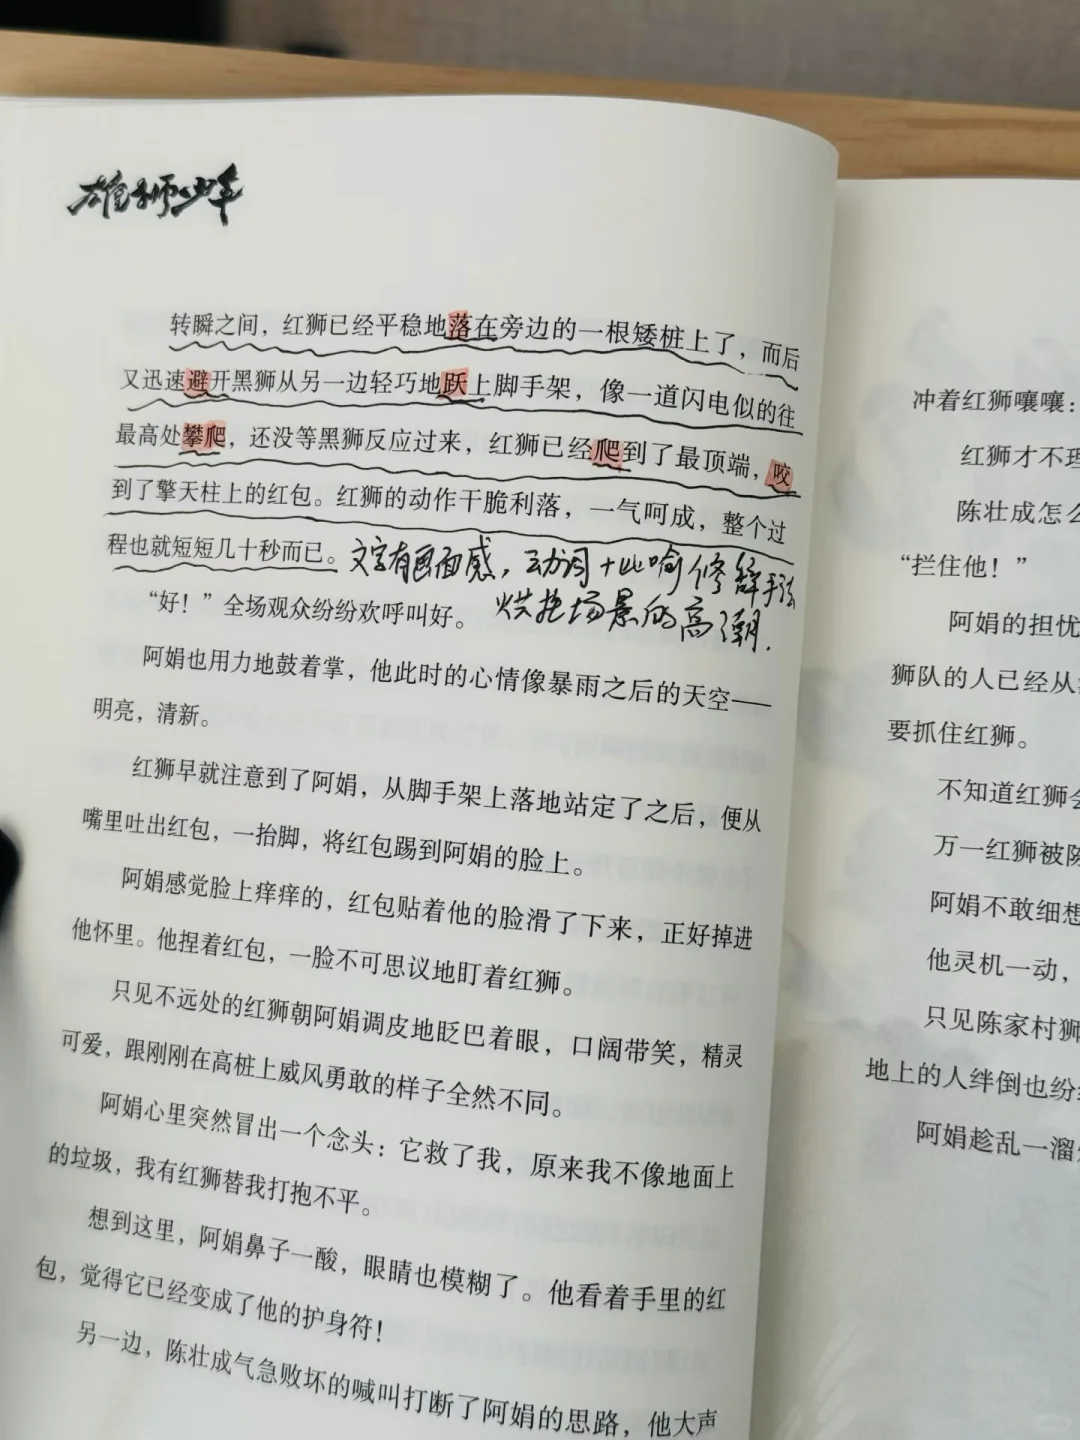 雄狮少年
转瞬之间，红狮已经平稳地落在旁边的一根矮桩上了，而后
又迅速避开黑狮从另一边轻巧地跃上脚手架，像一道闪电似的往
最高处攀爬，还没等黑狮反应过来，红狮已经爬到了最顶端，咬
到了擎天柱上的红包。红狮的动作干脆利落，一气呵成，整个过
程也就短短几十秒而已。文字有画面感，动词+比喻修辞手法
烘托场景的高潮.
“好！”全场观众纷纷欢呼叫好。
阿娟也用力地鼓着掌，他此时的心情像暴雨之后的天空——
明亮，清新。
红狮早就注意到了阿娟，从脚手架上落地站定了之后，便从
嘴里吐出红包，一抬脚，将红包踢到阿娟的脸上。
阿娟感觉脸上痒痒的，红包贴着他的脸滑了下来，正好掉进
他怀里。他捏着红包，一脸不可思议地盯着红狮。
只见不远处的红狮朝阿娟调皮地眨巴着眼，口阔带笑，精灵
可爱，跟刚刚在高桩上威风勇敢的样子全然不同。
阿娟心里突然冒出一个念头：它救了我，原来我不像地面上
的垃圾，我有红狮替我打抱不平。
想到这里，阿娟鼻子一酸，眼睛也模糊了。他看着手里的红
包，觉得它已经变成了他的护身符！
另一边，陈壮成气急败坏的喊叫打断了阿娟的思路，他大声
冲着红狮嚷嚷：
红狮才不理
陈壮成怎么
“拦住他！”
阿娟的担忧
狮队的人已经从
要抓住红狮。
不知道红狮会
万一红狮被陈
阿娟不敢细想
他灵机一动，
只见陈家村狮
地上的人绊倒也纷
阿娟趁乱一溜